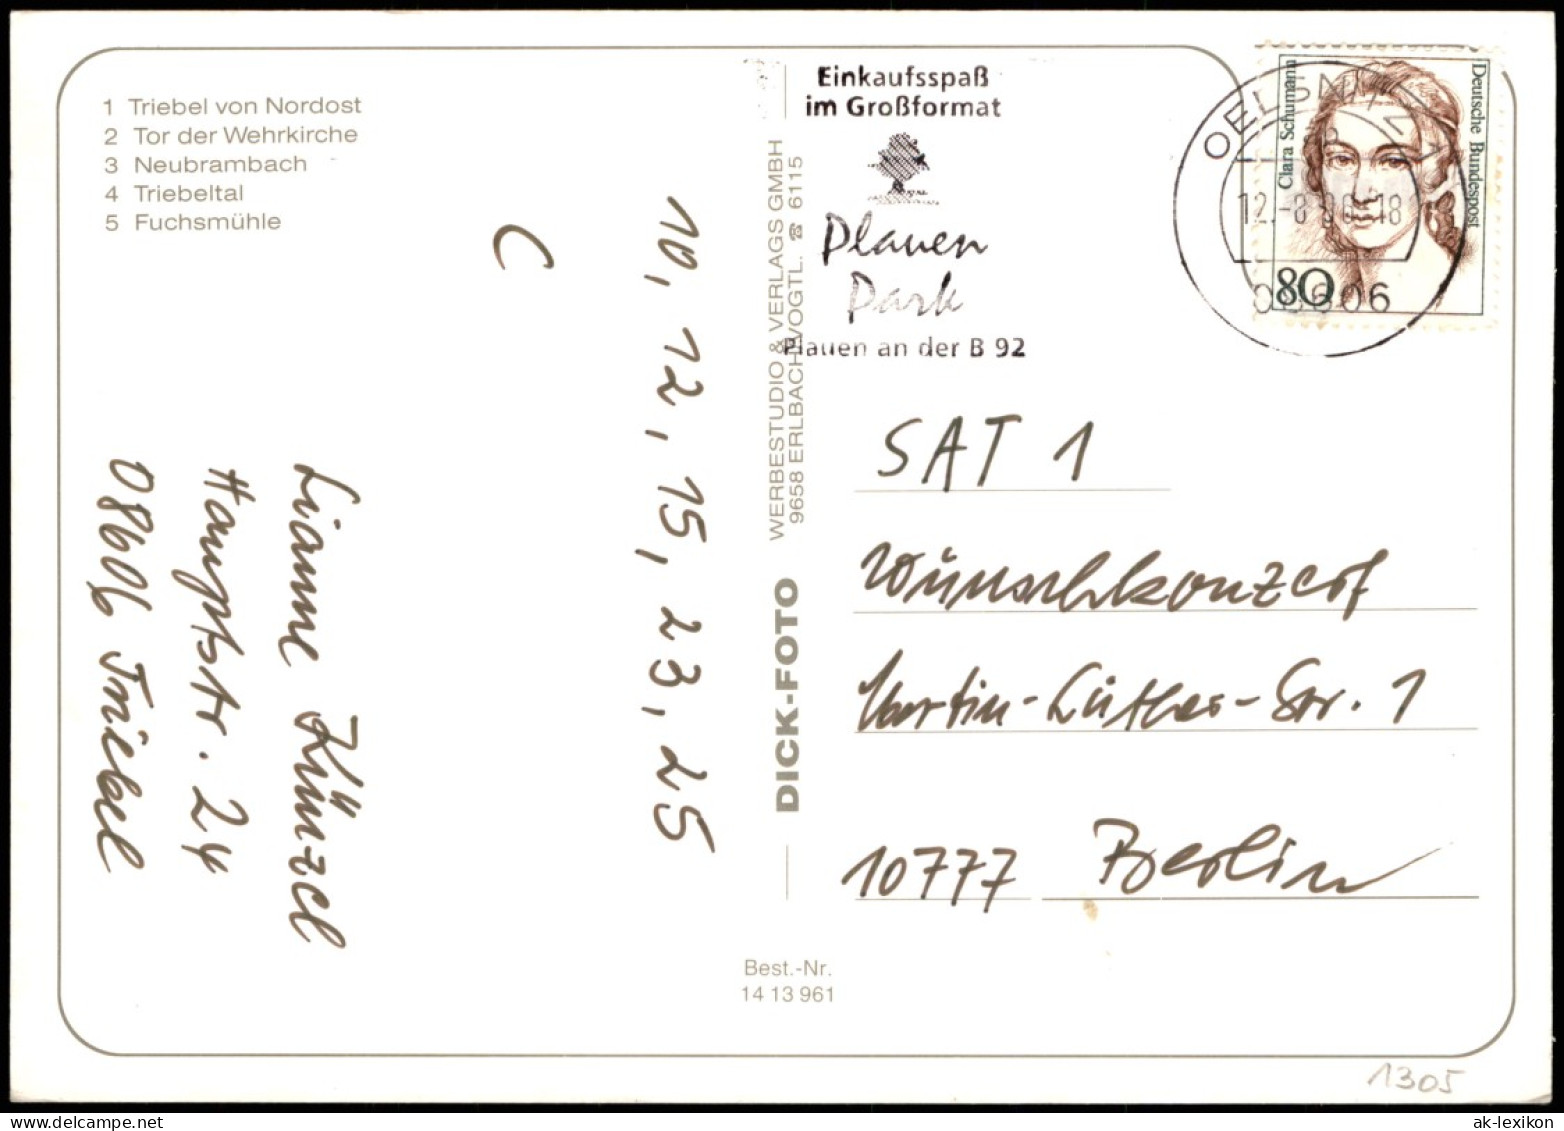 1 Triebel von Nordost
2 Tor der Wehrkirche
3 Neubrambach
4 Triebeltal
5 Fuchsmühle
Einkaufsspaß
im Großformat
Plauen
Park
Plauen an der B 92
OELSNITZ
12.-8. 18
08606
Clara Schumann
Deutsche Bundespost
80
C
10, 12, 15, 23, 25
Lianne Künzel
Hauptstr. 24
08606 Triebel
WERBESTUDIO & VERLAGS GMBH
9658 ERLBACH/VOGTL. ☎ 6115
DICK-FOTO
SAT 1
Wünschkonzert
Martin-Luther-Str. 1
10777 Berlin
Best.-Nr.
14 13 961
1305
ak-lexikon